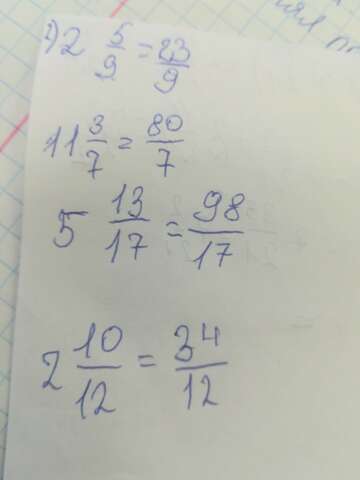 1) 2 5/9 = 23/9
11 3/7 = 80/7
5 13/17 = 98/17
2 10/12 = 34/12